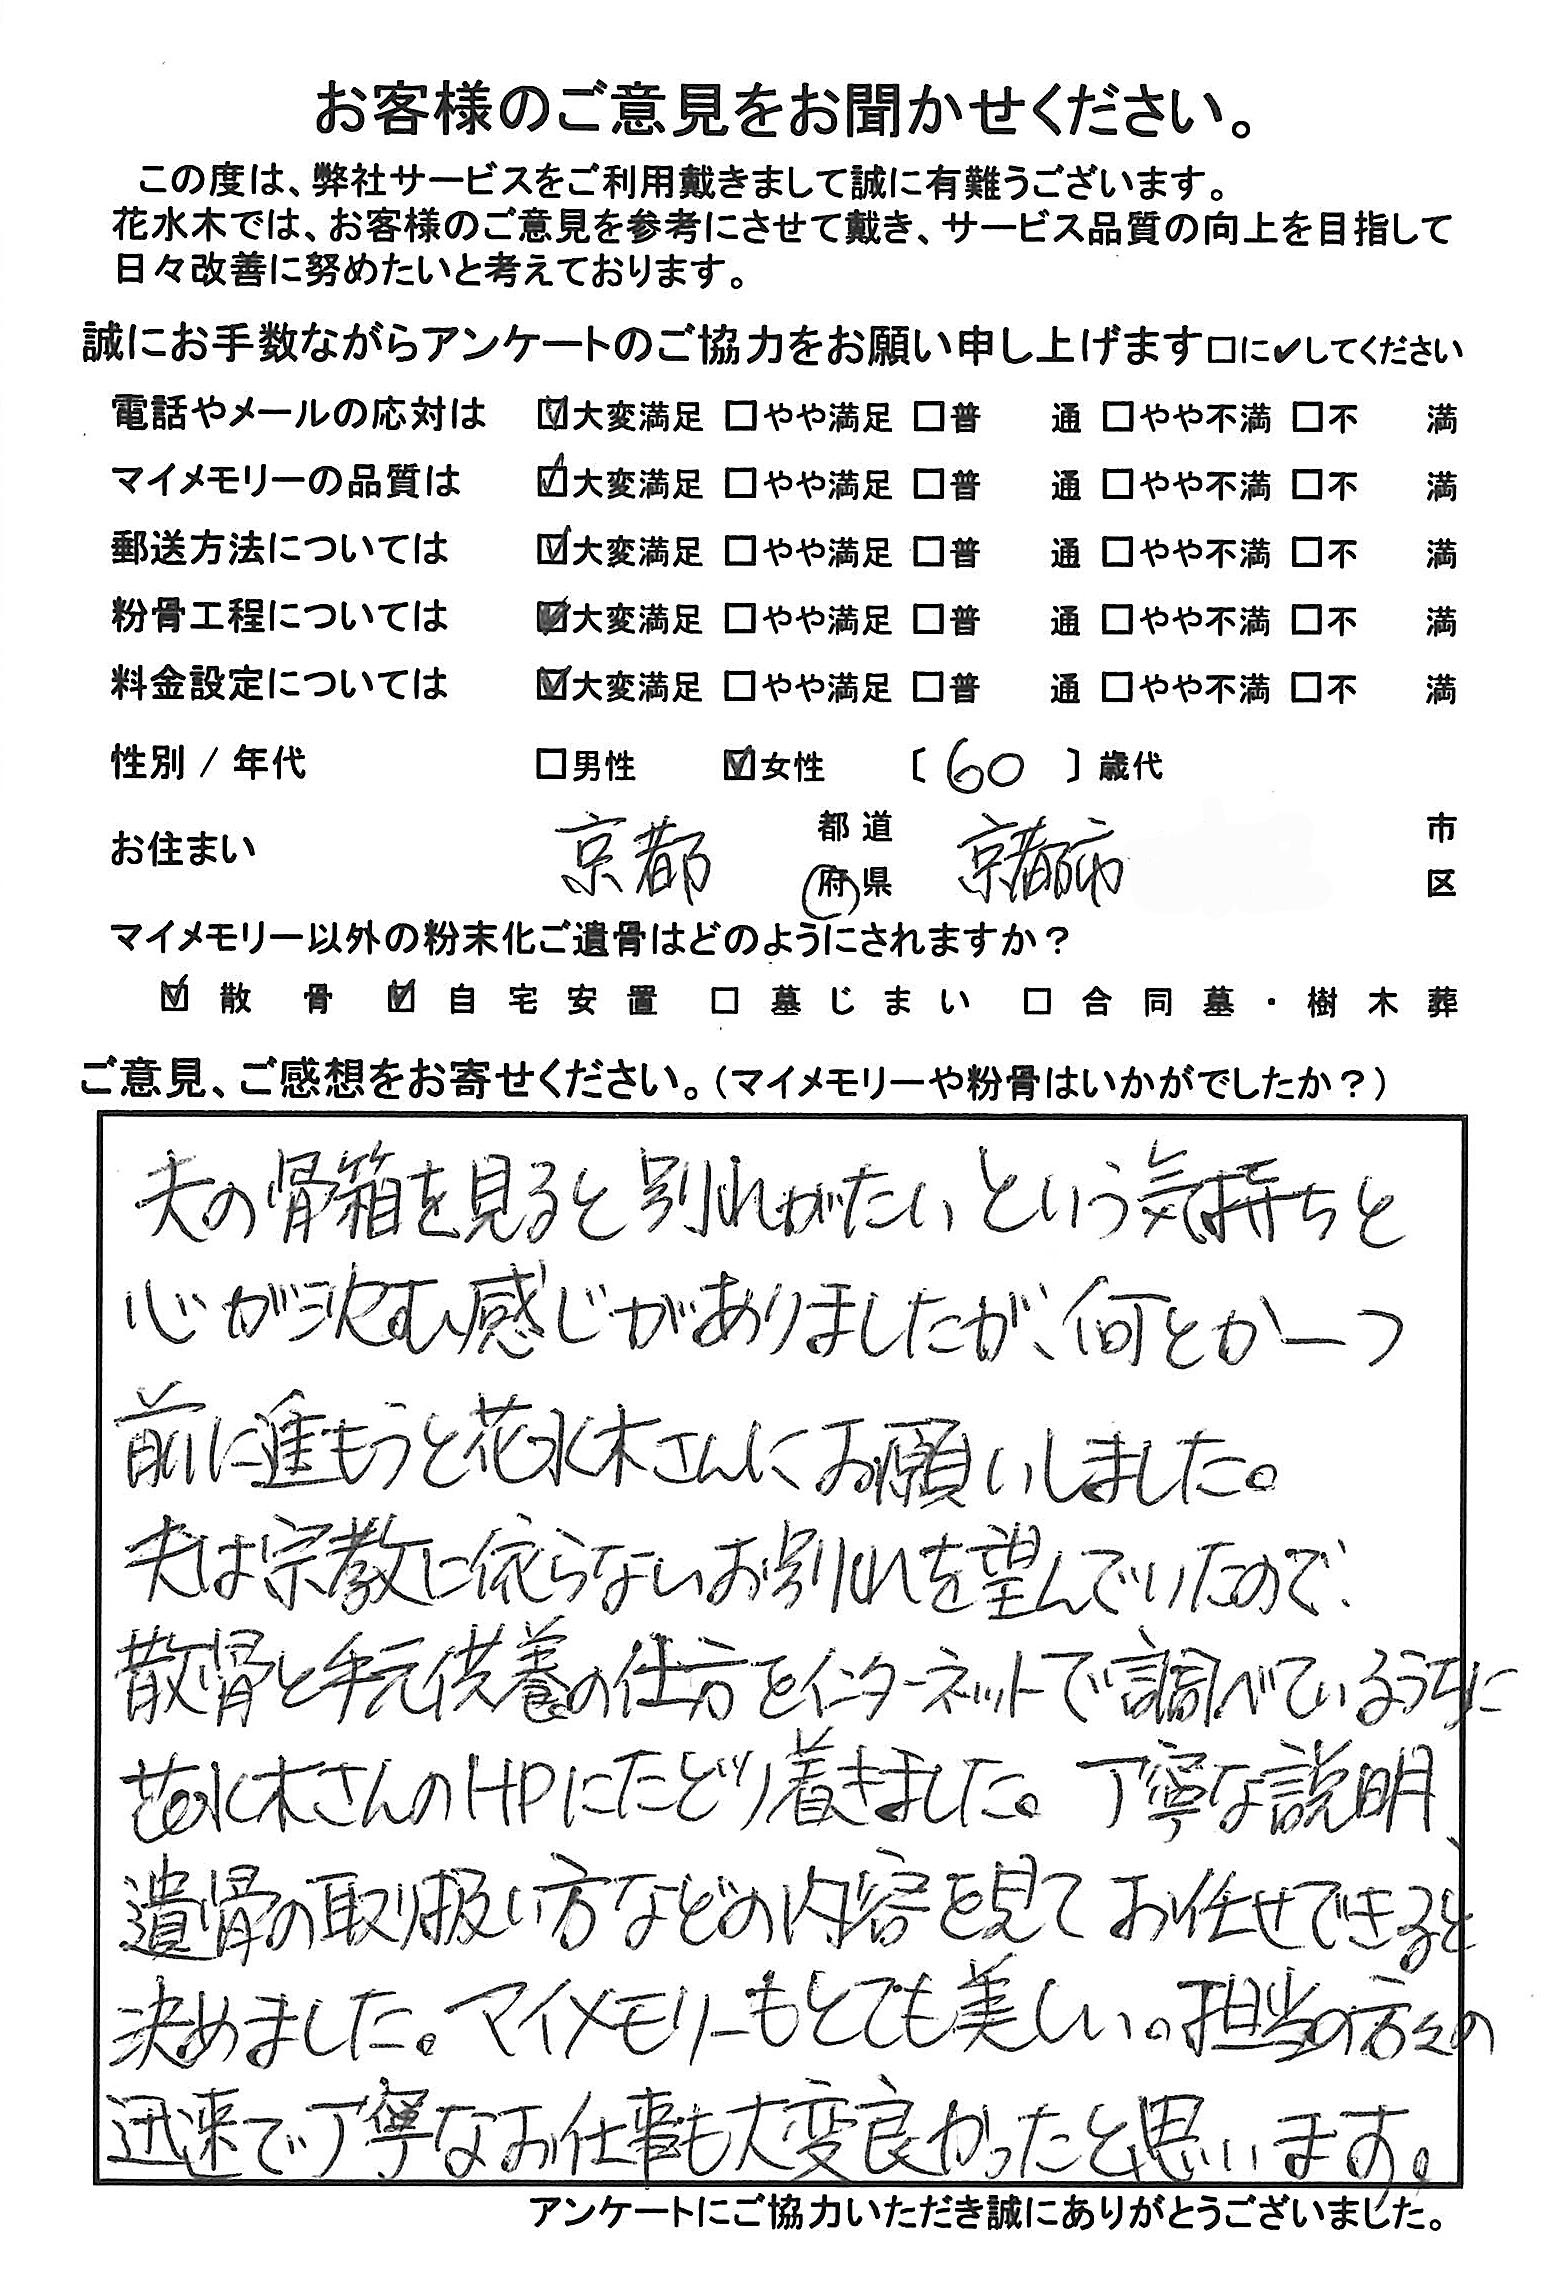 お客様のご意見をお聞かせください。
この度は、弊社サービスをご利用戴きまして誠に有難うございます。
花水木では、お客様のご意見を参考にさせて戴き、サービス品質の向上を目指して
日々改善に努めたいと考えております。
誠にお手数ながらアンケートのご協力をお願い申し上げます□に✔してください
電話やメールの応対は ☑大変満足 □やや満足 □普 通 □やや不満 □不 満
マイメモリーの品質は ☑大変満足 □やや満足 □普 通 □やや不満 □不 満
郵送方法については ☑大変満足 □やや満足 □普 通 □やや不満 □不 満
粉骨工程については ☑大変満足 □やや満足 □普 通 □やや不満 □不 満
料金設定については ☑大変満足 □やや満足 □普 通 □やや不満 □不 満
性別 / 年代 □男性 ☑女性 〔 60 〕歳代
お住まい 京都 都道府県 京都市 市区
マイメモリー以外の粉末化ご遺骨はどのようにされますか？
☑ 散骨 ☑ 自宅安置 □ 墓じまい □ 合同墓・樹木葬
ご意見、ご感想をお寄せください。（マイメモリーや粉骨はいかがでしたか？）
夫の骨箱を見ると別れがたいという気持ちと
心が沈む感じがありましたが、何とか一つ
前に進もうと花水木さんにお願いしました。
夫は宗教に依らないお別れを望んでいたので、
散骨と手元供養の仕方をインターネットで調べているうちに
花水木さんのHPにたどり着きました。丁寧な説明、
遺骨の取り扱い方などの内容を見てお任せできると
決めました。マイメモリーもとても美しい。担当の方々の
迅速で丁寧なお仕事も大変良かったと思います。
アンケートにご協力いただき誠にありがとうございました。